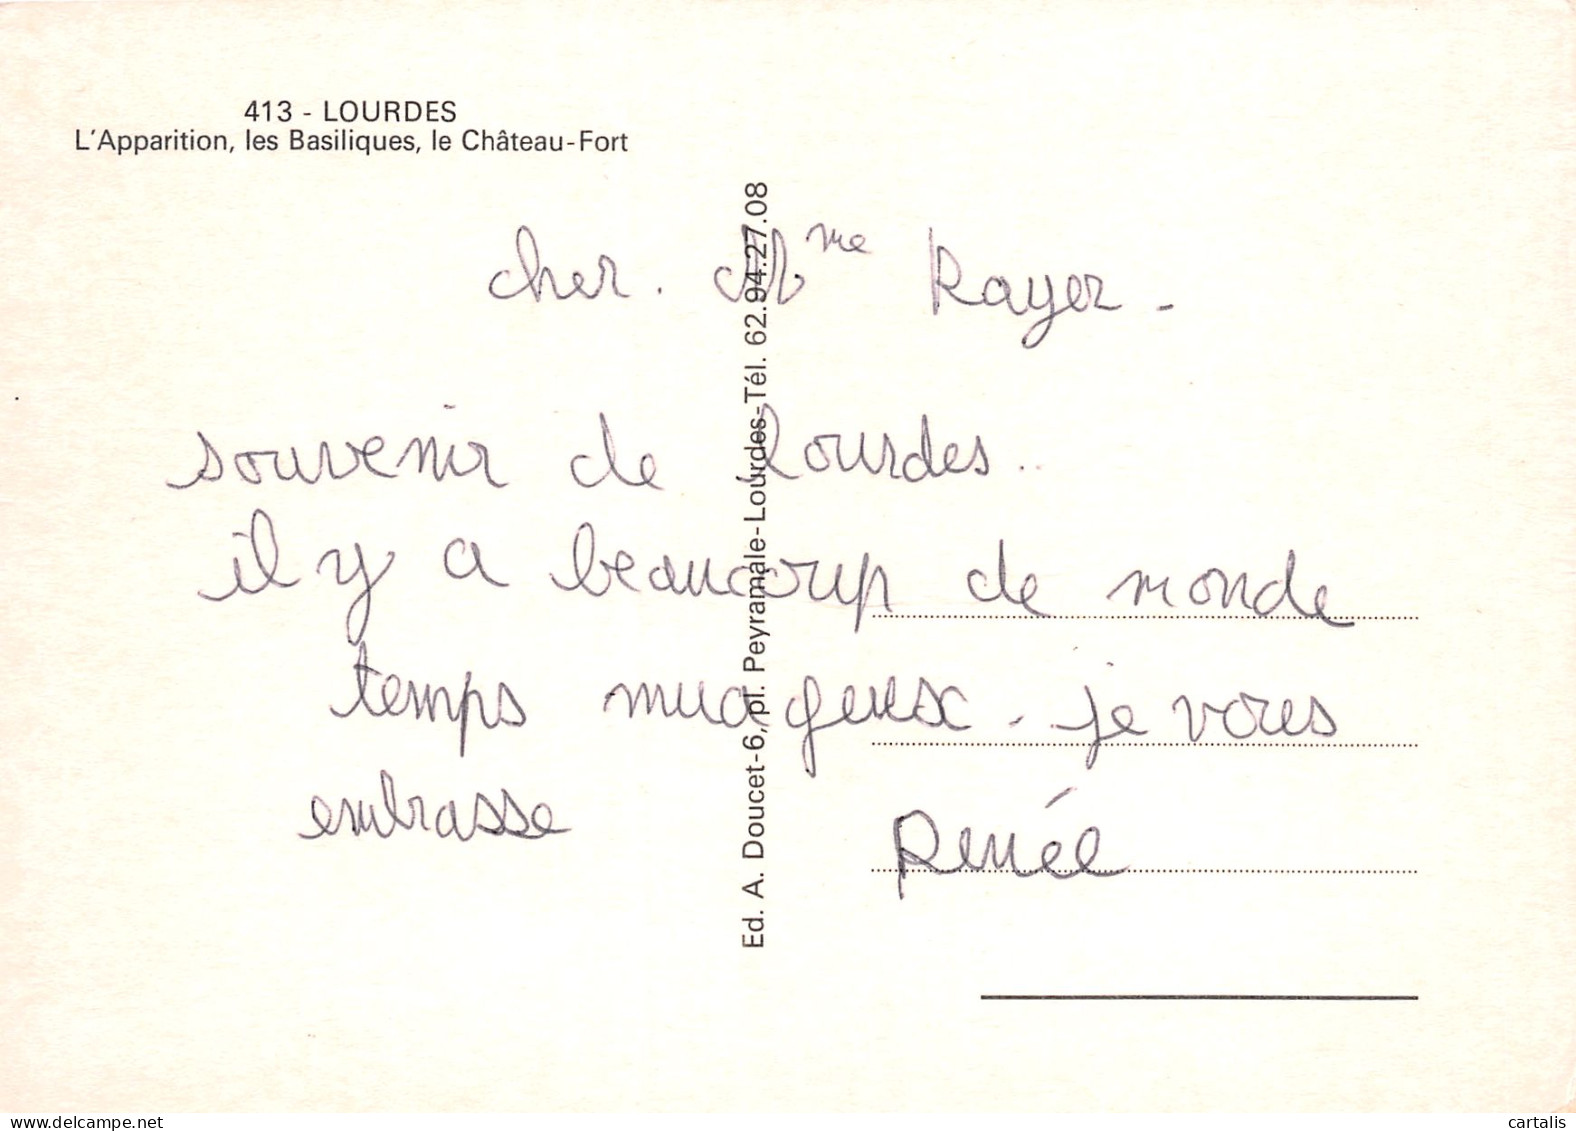 413 - LOURDES
L'Apparition, les Basiliques, le Château-Fort
cher. Mme Rayer -
souvenir de Lourdes..
il y a beaucoup de monde
temps nuageux - je vous
embrasse Renée
Ed. A. Doucet-6, pl. Peyramale-Lourdes-Tél. 62.94.27.08
delcampe.net
cartalis